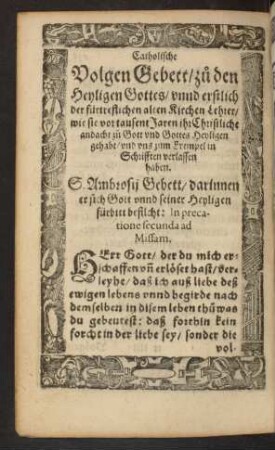 Catholische
Volgen Gebett/ zů den
Heyligen Gottes/ vnnd erstlich
der fürtreflichen alten Kirchen Lehrer/
wie sie vor tausent Jaren ihr Christliche
andacht zů Gott vnd Gottes Heyligen
gehabt/ vnd vns zum Exempel in
Schrifften verlassen
haben.
S. Ambrosij Gebett/ darinnen
er sich Gott vnnd seiner Heyligen
fürbitt befilcht: In preca-
tione secunda ad
Missam.
HErr Gott/ der du mich er-
schaffen vñ erlöset hast/ ver-
leyhe/ daß ich auß liebe deß
ewigen lebens vnnd begirde nach
demselben in disem leben thů was
du gebeutest: daß forthin kein
forcht in der liebe sey/ sonder die
vol-